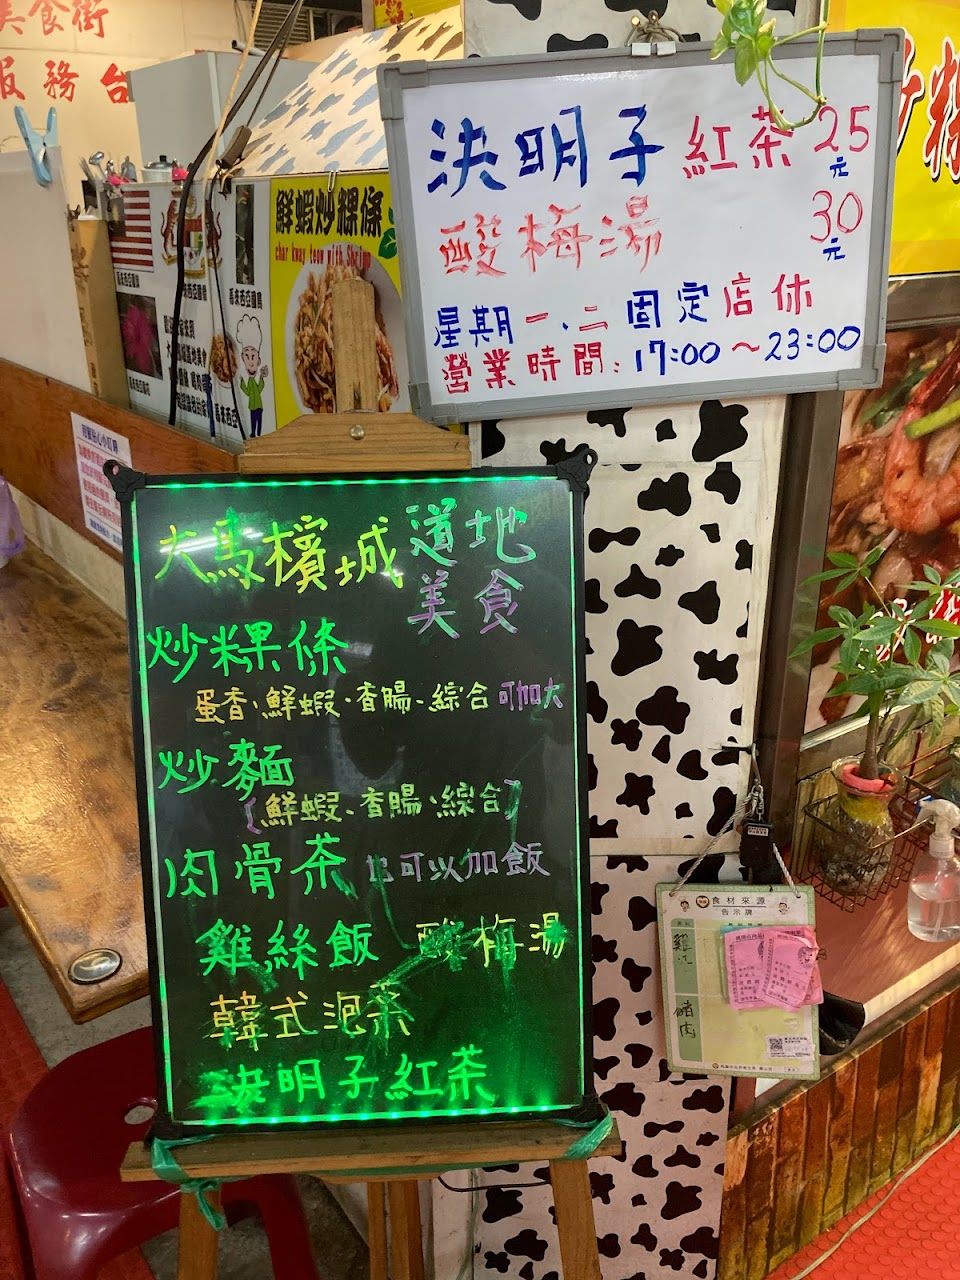 美食街
服務台
鮮蝦炒粿條
char kway teow with Shrimp
決明子紅茶 25元
酸梅湯 30元
星期一、二固定店休
營業時間：17:00～23:00
大馬檳城 道地美食
炒粿條
蛋香、鮮蝦、香腸、綜合 可加大
炒麵
(鮮蝦、香腸、綜合)
肉骨茶 也可以加飯
雞絲飯 酸梅湯
韓式泡菜
決明子紅茶
食材來源
告示牌
豬肉